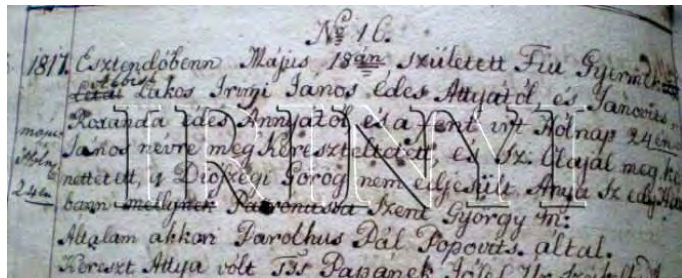 No 16.
1817. Esztendőbenn Május 18án született Fiu Gyermek
Létai Albisi lakos Irinyi János édes Attyától, és Janovits
Roxanda édes Annyától és a fent irt Hólnap 24én
János névre meg Keresztelkedett, és Sz. Olajal meg ke
nettetett, Diószegi Görög nem edjesült Anya Sz. edj Ház
bann melynek Patronussa Szent György m:
Altalam akkori Parokhus Pál Popovits. által.
Kereszt Attya volt
május
Holnap
24én
IRINYI